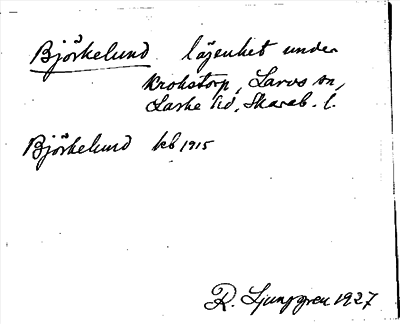 Björkelund lägenhet under
Krokstorp, Larvs sn,
Laske hd, Skarab. l.
Björkelund kb 1915
R. Ljunggren 1927